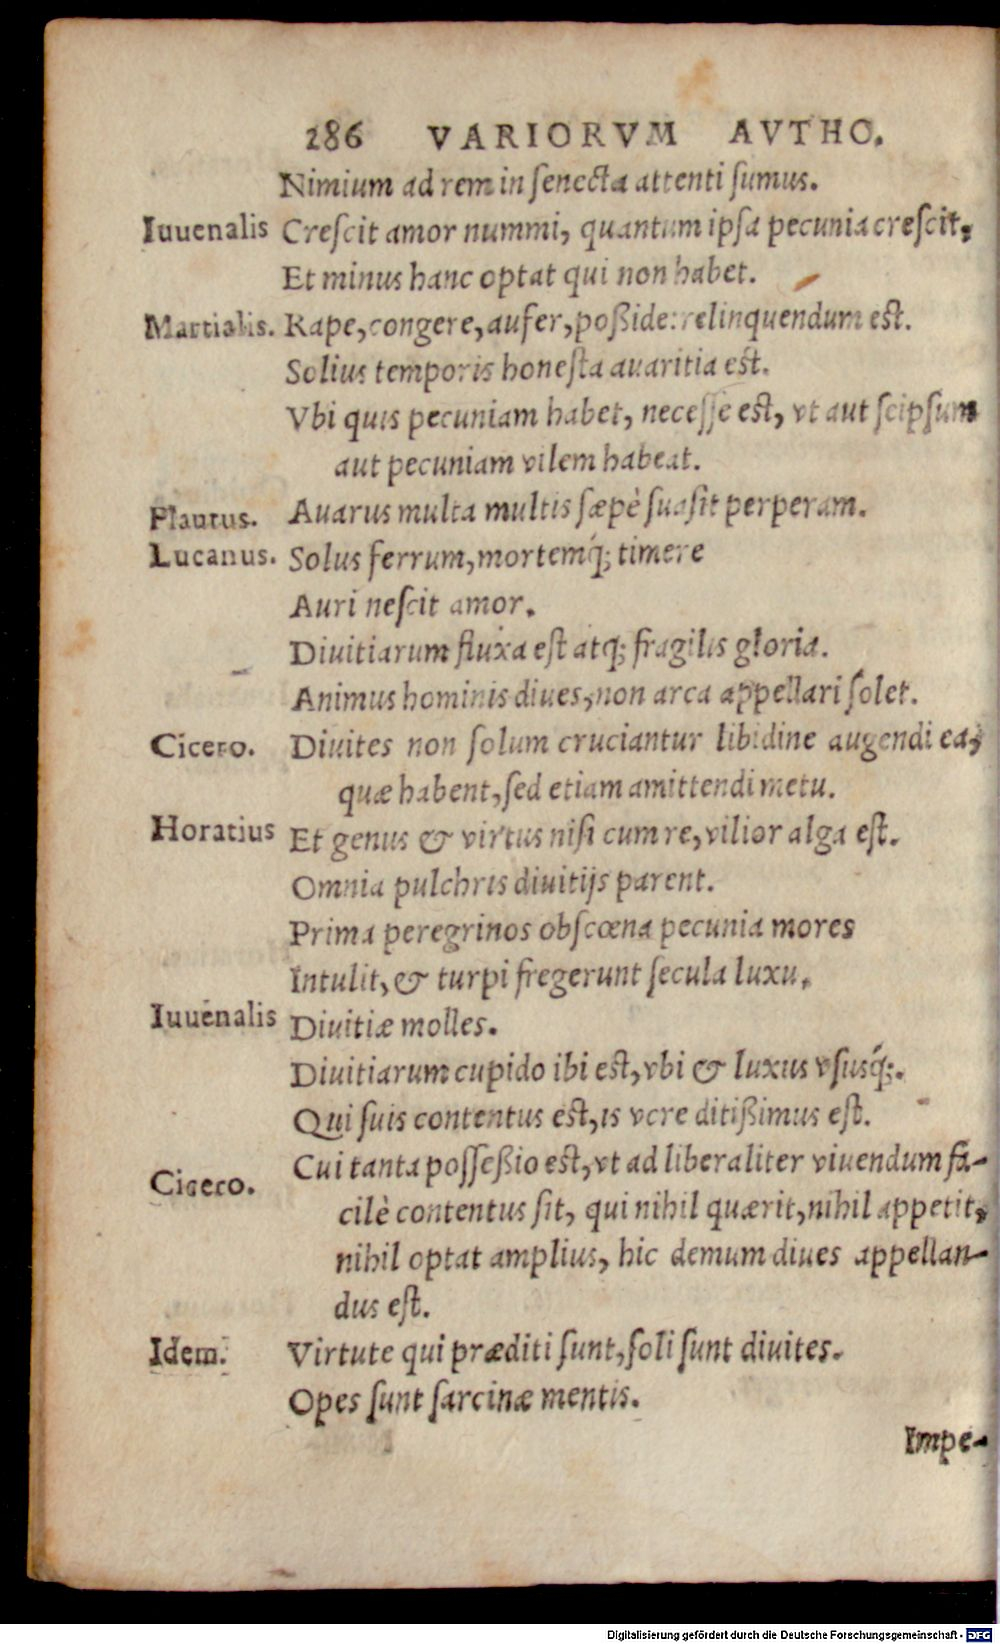 286 VARIORVM AVTHO.
Nimium ad rem in ſenecta attenti ſumus.
Iuuenalis Creſcit amor nummi, quantum ipſa pecunia creſcit,
Et minus hanc optat qui non habet.
Martialis. Rape, congere, aufer, poßide: relinquendum est.
Solius temporis honeſta auaritia est.
Vbi quis pecuniam habet, neceſſe est, vt aut ſeipſum
aut pecuniam vilem habeat.
Plautus. Auarus multa multis ſæpè ſuaſit perperam.
Lucanus. Solus ferrum, mortemq́; timere
Auri neſcit amor.
Diuitiarum fluxa eſt atq; fragilis gloria.
Animus hominis diues, non arca appellari ſolet.
Cicero. Diuites non ſolum cruciantur libidine augendi ea,
quæ habent, ſed etiam amittendi metu.
Horatius Et genus & virtus niſi cum re, vilior alga eſt.
Omnia pulchris diuitijs parent.
Prima peregrinos obſcœna pecunia mores
Intulit, & turpi fregerunt ſecula luxu.
Iuuenalis Diuitiæ molles.
Diuitiarum cupido ibi est, vbi & luxus vſusq́;.
Qui ſuis contentus est, is vere ditißimus eſt.
Cicero. Cui tanta poſſeßio est, vt ad liberaliter viuendum fa-
cilè contentus ſit, qui nihil quærit, nihil appetit,
nihil optat amplius, hic demum diues appellan-
dus eſt.
Idem. Virtute qui præditi ſunt, ſoli ſunt diuites.
Opes ſunt ſarcinæ mentis.
Impe-
Digitalisierung gefördert durch die Deutsche Forschungsgemeinschaft - DFG